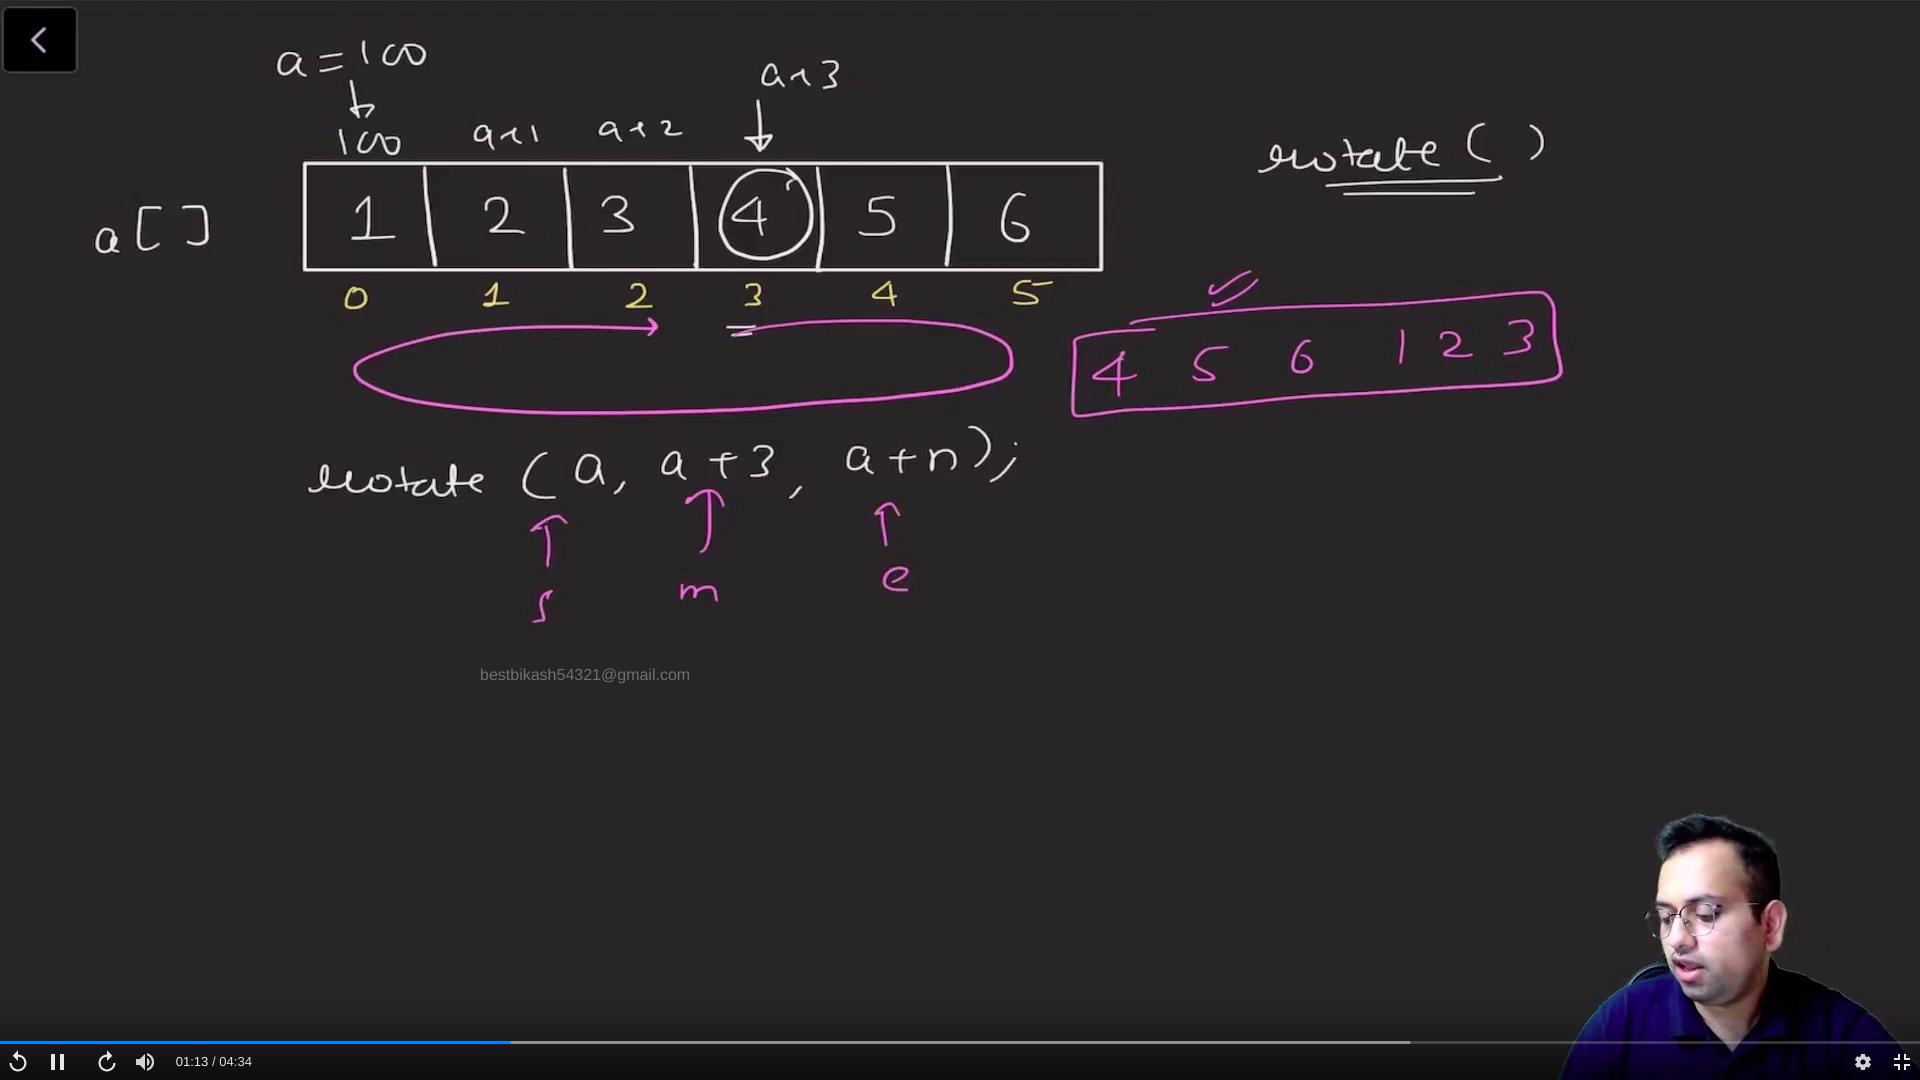 a = 100
a+3
100 a+1 a+2
rotate ( )
a [ ] 1 2 3 4 5 6
0 1 2 3 4 5
4 5 6 1 2 3
rotate (a, a+3, a+n);
s m e
bestbikash54321@gmail.com
01:13 / 04:34